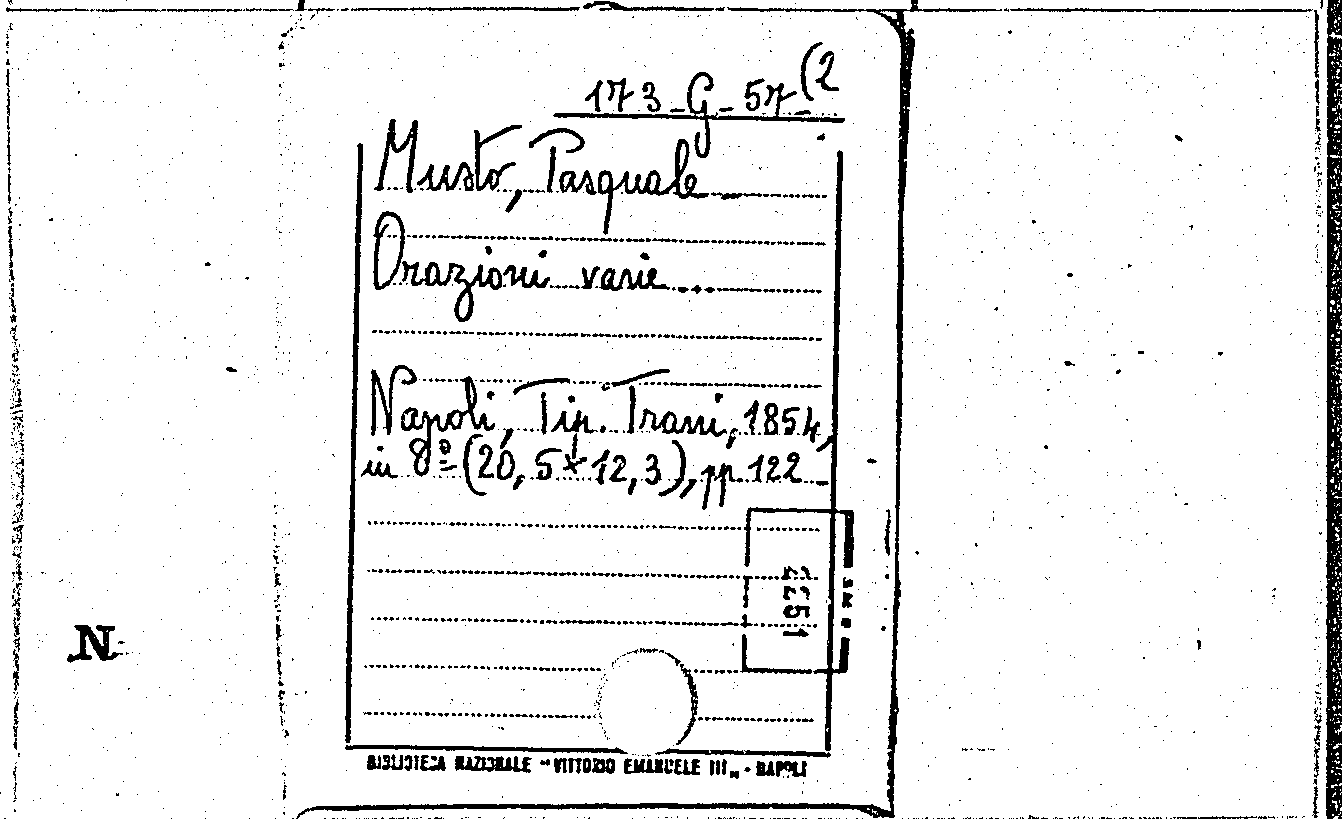 173_G_57_(2
Musto, Pasquale_
Orazioni varie...
Napoli, Tip. Trani, 1854,
in 8º=(20,5×12,3), pp. 122_
N
BIBLIOTECA NAZIONALE "VITTORIO EMANUELE III„ - NAPOLI